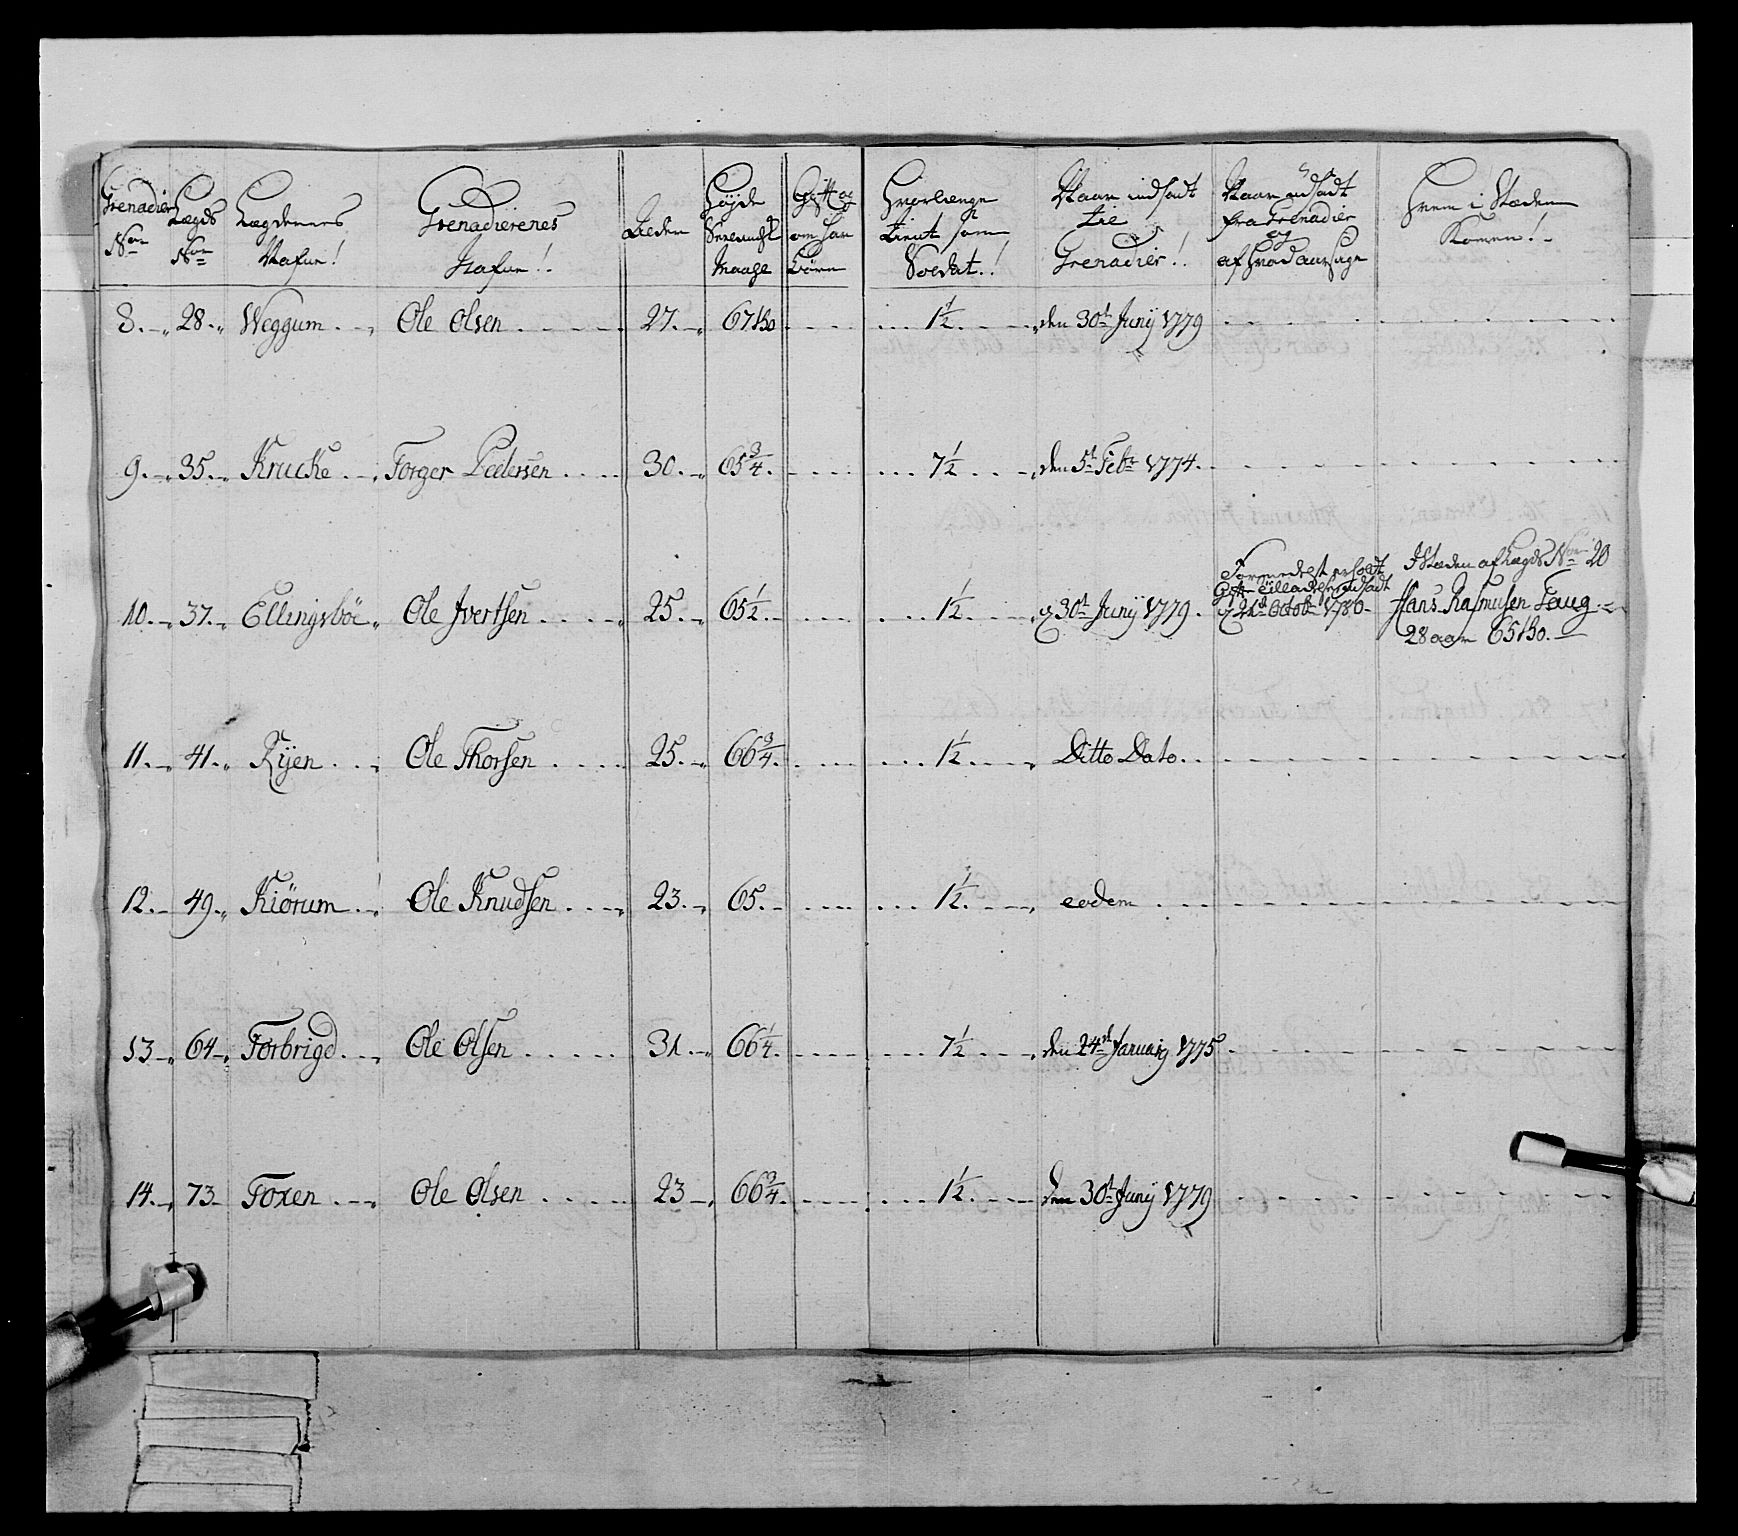 Grenadier
No
Lægds
No
Lægdernes
Nafne!
Grenadierenes
Nafne!
Alder
Høyde
Maage
Gift og
om har
Børn
Hvorlænge
tient som
Soldat!
Naar indsadt
til
Grenadier!
Naar udsadt
fra Grenadier
og
af hvad aarsage
Hvem i Stæden
Komen!
8. 28. Weggum Ole Olsen 27. 67 1½ den 30t Junÿ 1779
9. 35. Krucke Torger Pedersen 30. 65¾. 7½ den 5t Febr 1774.
10. 37. Ellingsböe Ole Ivertsen 25. 65½ 1½ 30t Junÿ 1779. 21d Octobr 1780
I Stæden af Lægds No 20
Hans Rasmusen Haug
28 aar 65
11. 41. Rÿen Ole Thorsen 25. 66¾. 1½ Ditto Dato.
12. 49. Kiörum Ole Knudsen 23. 65. 1½ eodem
13 64 Forbrigd Ole Olsen 31. 66¼. 7½ den 24de Januarÿ 1775
14. 73 Foxen Ole Olsen 23 66¾. 1½ den 30t Junÿ 1779